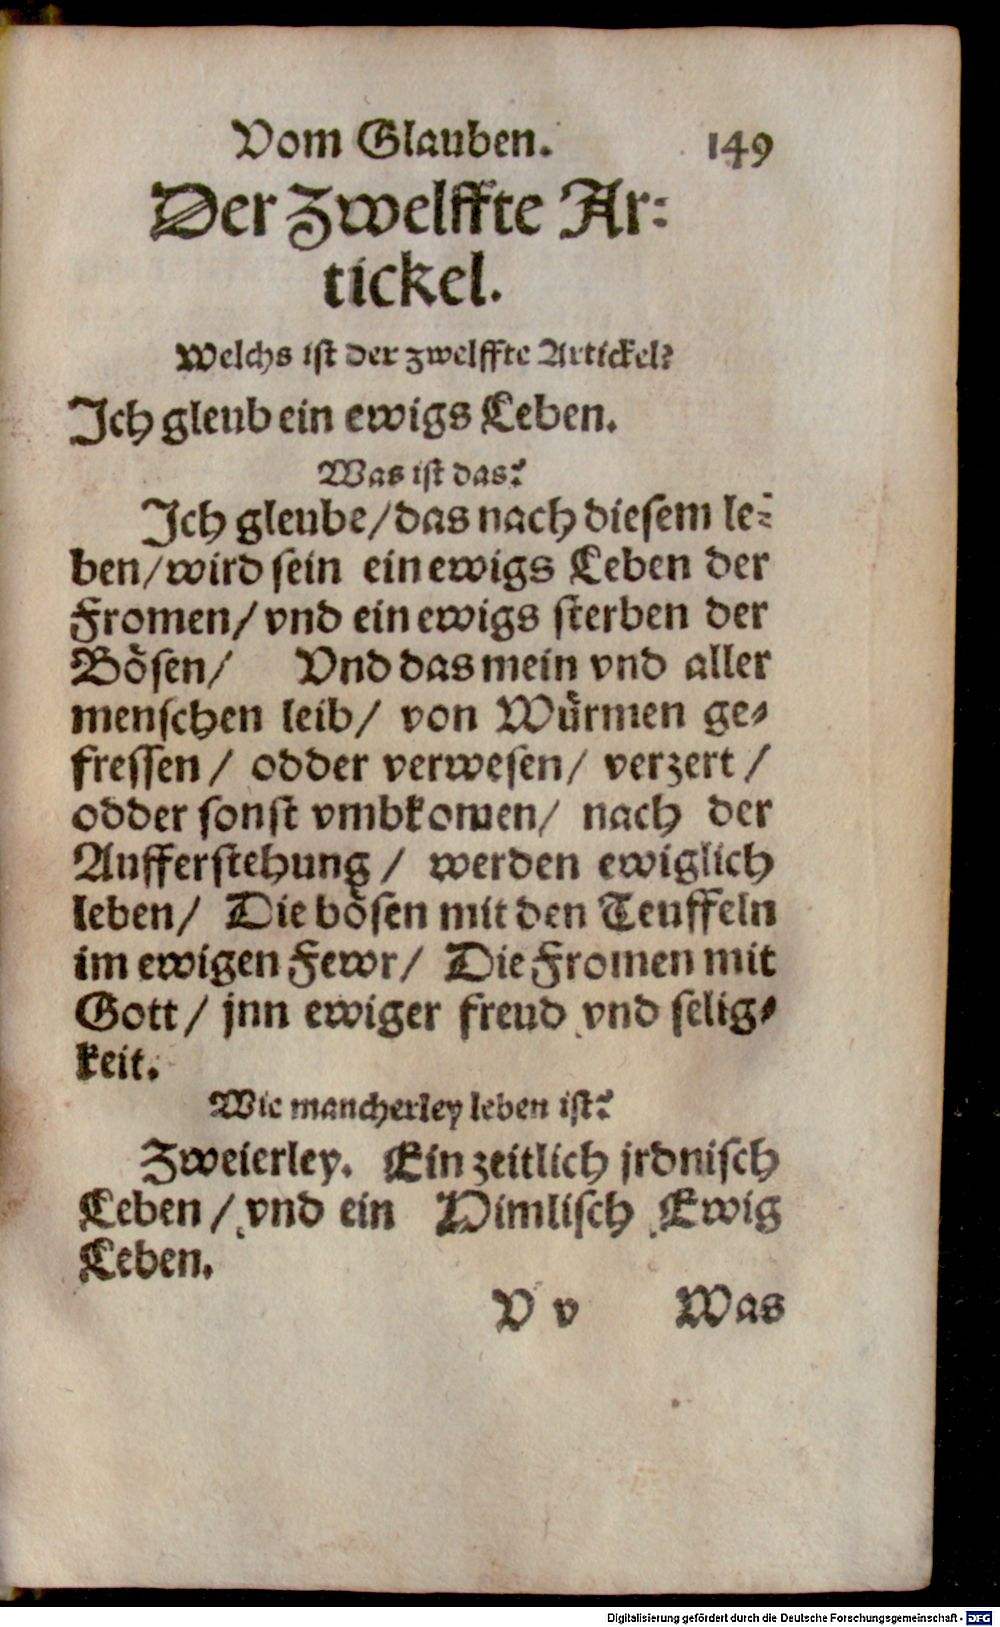 Vom Glauben. 149
Der Zwelffte Ar-
tickel.
Welchs ist der zwelffte Artickel?
Ich gleub ein ewigs Leben.
Was ist das?
Ich gleube/das nach diesem le-
ben/wird sein ein ewigs Leben der
Fromen/vnd ein ewigs sterben der
Bösen/ Vnd das mein vnd aller
menschen leib/ von Würmen ge-
fressen/ odder verwesen/ verzert/
odder sonst vmbkomen/ nach der
Aufferstehung/ werden ewiglich
leben/ Die bösen mit den Teuffeln
im ewigen Fewr/ Die Fromen mit
Gott/ jnn ewiger freud vnd selig-
keit.
Wie mancherley leben ist?
Zweierley. Ein zeitlich jrdnisch
Leben/ vnd ein Himlisch Ewig
Leben.
V v Was
Digitalisierung gefördert durch die Deutsche Forschungsgemeinschaft - DFG